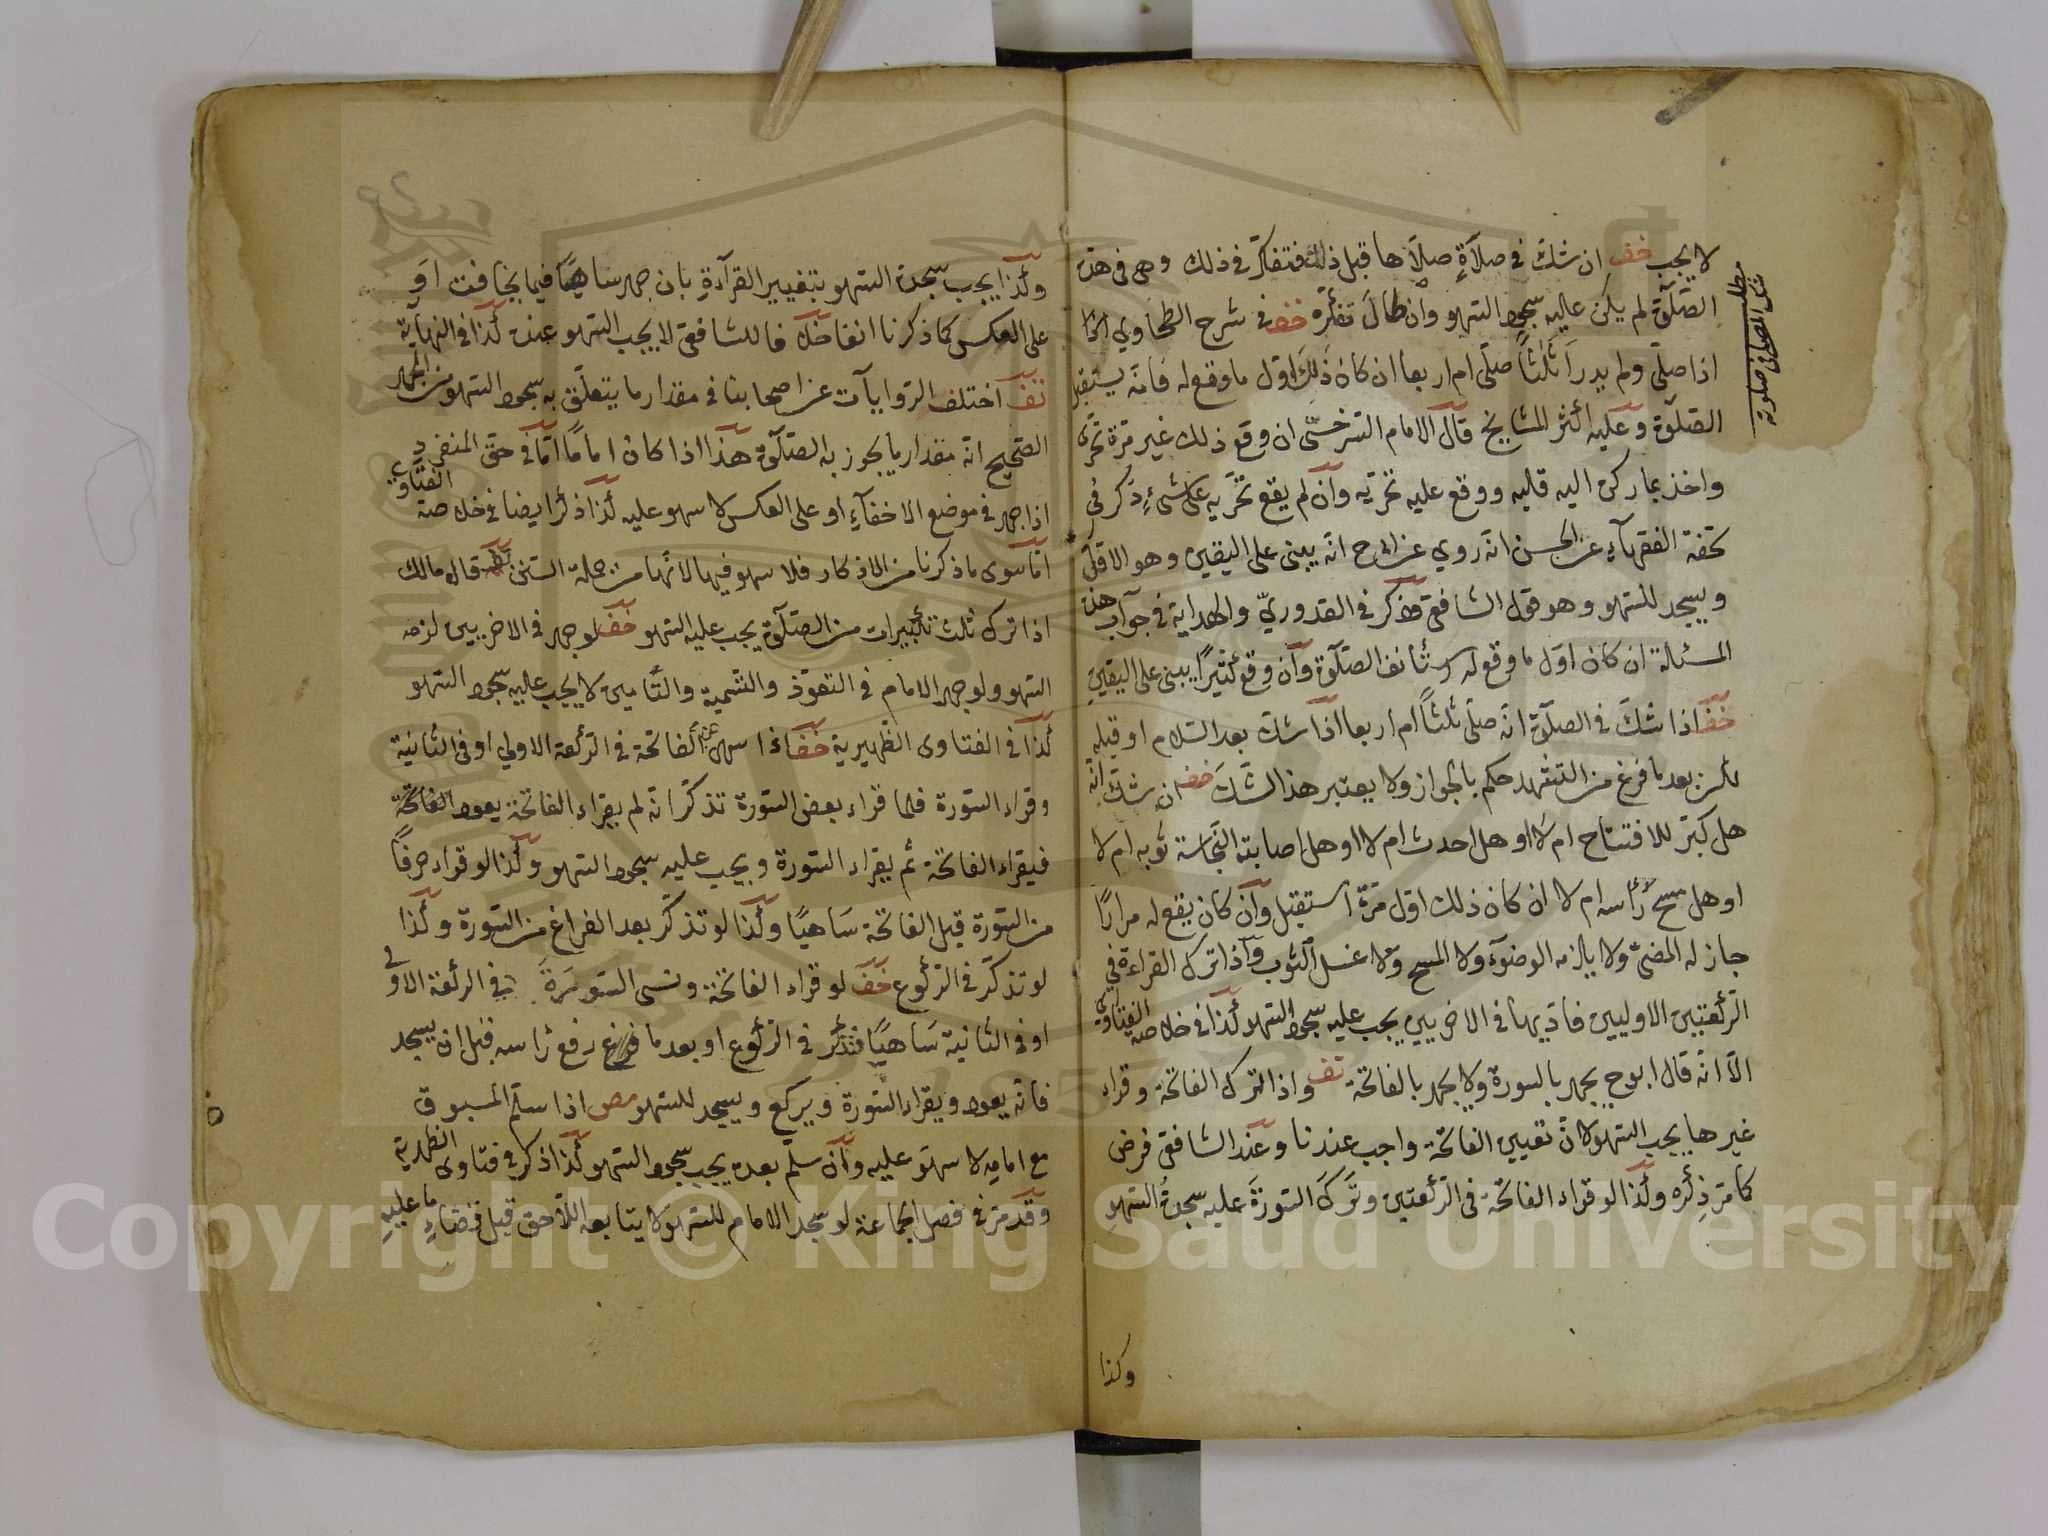 لا يجب خف ان شك في صلاةٍ صلاها قبل ذلك فتفكر في ذلك وهي في هذه
الصلوة لم يكن عليه سجود السهو وان طال تفكره خف في شرح الطحاوي
اذا صلى ولم يدر أثلثاً صلى ام اربعا ان كان ذلك اول ما وقع له فانه يستقبل
الصلوة وعليه اكثر المشايخ قال الامام السرخسي ان وقع ذلك غير مرة تحرى
واخذ بما ركن اليه قلبه ووقع عليه تحريه وان لم يقع تحريه على شيء ذكر في
تحفة الفقهاء عن الحسن انه روي عن ابي ح انه يبنى على اليقين وهو الاقل
ويسجد للسهو وهو قول الشافعي وذكر في القدوري والهداية في جواب هذه
المسئلة ان كان اول ما وقع له استأنف الصلوة وان وقع كثيراً يبنى على اليقين
خف اذا شك في الصلوة انه صلى ثلثاً ام اربعا اذا شك بعد السلام او قبله
لكن بعد ما فرغ من التشهد حكم بالجواز ولا يعتبر هذا الشك خف ان شك انه
هل كبر للافتتاح ام لا او هل احدث ام لا او هل اصابته النجاسة ثوبه ام لا
او هل مسح رأسه ام لا ان كان ذلك اول مرة استقبل وان كان يقع له مرارا
جاز له المضى ولا يلزمه الوضوء ولا المسح ولا غسل الثوب واذا ترك القراءة في
الركعتين الاوليين فاديها في الاخريين يجب عليه سجود السهو كذا في خلاصة الفتاوى
الا انه قال ابو ح يجهر بالسورة ولا يجهر بالفاتحة تف واذا ترك الفاتحة وقراء
غيرها يجب السهو لان تعيين الفاتحة واجب عندنا وعند الشافعي فرض
كما مر ذكره وكذا لو قراء الفاتحة في الركعتين وترك السورة عليه سجدة السهو
وكذا
مطلب
شك المصلي في صلوته
وكذا يجب سجدة السهو بتغيير القرآءة بان جهر ساهيا فيما يخافت او
على العكس كما ذكرنا انفا خلافا للشافعي لا يجب السهو عنده كذا في النهاية
تف اختلف الروايات عن اصحابنا في مقدار ما يتعلق به سجود السهو من الجهر
الصحيح انه مقدار ما يجوز به الصلوة هذا اذا كان اماما اما في حق المنفرد
اذا جهر في موضع الاخفاء او على العكس لا سهو عليه كذا ذكر ايضا في خلاصة الفتاوى
اما سوى ما ذكرنا من الاذكار فلا سهو فيها لانها من جملة السنن قال مالك
اذا ترك ثلث تكبيرات من الصلوة يجب عليه السهو خف لو جهر في الاخريين لزمه
السهو ولو جهر الامام في التعوذ والتسمية والتأمين لا يجب عليه سجود السهو
كذا في الفتاوى الظهيرية خف اذا سهى عن الفاتحة في الركعة الاولى او في الثانية
وقراء السورة فلما قراء بعض السورة تذكر انه لم يقراء الفاتحة يعود الفاتحة
فيقراء الفاتحة ثم يقراء السورة ويجب عليه سجود السهو وكذا لو قراء حرفاً
من السورة قبل الفاتحة ساهيًا وكذا لو تذكر بعد الفراغ من السورة وكذا
لو تذكر في الركوع خف لو قراء الفاتحة ونسى السورة في الركعة الاولى
او في الثانية ساهيًا فتذكر في الركوع او بعد ما فرغ رفع رأسه قبل ان يسجد
فانه يعود ويقراء السورة ويركع ويسجد للسهو مص اذا سلم المسبوق
مع امامه لا سهو عليه وان سلم بعده يجب سجود السهو كذا ذكر في فتاوى الظهيرية
وقد مر في فصل الجماعة لو سجد الامام للسهو لا يتابعه اللاحق قبل قضاء ما عليه
Copyright © King Saud University